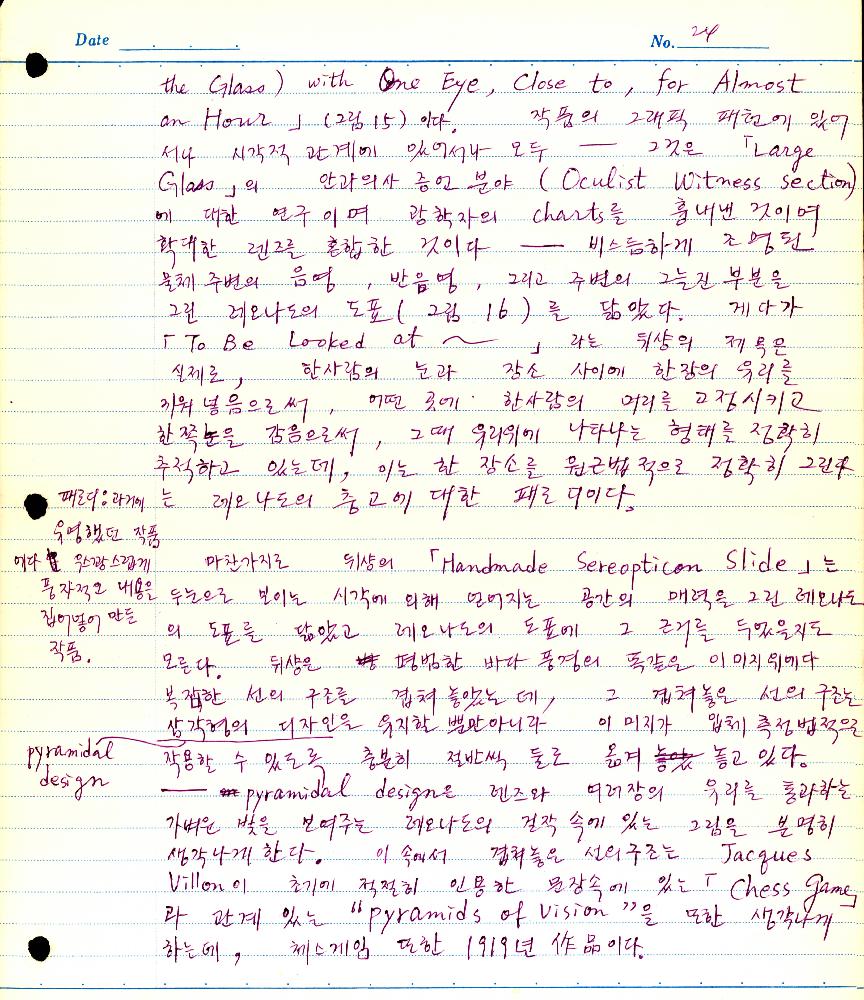 Date
No. 24
the Glass) with One Eye, Close to, for Almost
an Hour 」 (그림 15) 이다. 작품의 그래픽 패턴에 있어
서나 시각적 관계에 있어서나 모두 — 그것은 「Large
Glass」의 안과의사 증언 분야 (Oculist Witness section)
에 대한 연구이며 광학자의 charts를 흉내낸 것이며
확대한 렌즈를 혼합한 것이다 — 비스듬하게 조명된
물체 주변의 음영, 반음영, 그리고 주변의 그늘진 부분을
그린 레오나도의 도표 (그림 16) 를 닮았다. 게다가
「To Be Looked at ~ 」 라는 뒤샹의 제목은
실제로, 한사람의 눈과 장소 사이에 한장의 유리를
끼워 넣음으로써, 어떤 곳에 한사람의 머리를 고정시키고
한쪽눈을 감음으로써, 그때 유리위에 나타나는 형태를 정확히
추적하고 있는데, 이는 한 장소를 원근법적으로 정확히 그린다
는 레오나도의 충고에 대한 패로디이다.
패로디: 과거에
유명했던 작품
에다 우스꽝스럽게
풍자적인 내용을
집어넣어 만든
작품.
마찬가지로 뒤샹의 「Handmade Sereopticon Slide」는
두눈으로 보이는 시각에 의해 얻어지는 공간의 매력을 그린 레오나도
의 도표를 닮았고 레오나도의 도표에 그 근거를 두었을지도
모른다. 뒤샹은 평범한 바다 풍경의 똑같은 이미지위에다
복잡한 선의 구조를 겹쳐 놓았는데, 그 겹쳐놓은 선의 구조는
삼각형의 디자인을 유지할 뿐만아니라 이미지가 입체 측정법적으로
작용할 수 있도록 충분히 절반씩 둘로 옮겨 놓고 있다.
pyramidal
design
— pyramidal design은 렌즈와 여러장의 유리를 통과하는
가벼운 빛을 보여주는 레오나도의 걸작 속에 있는 그림을 분명히
생각나게 한다. 이 속에서 겹쳐놓은 선의구조는 Jacques
Villon이 초기에 적절히 인용한 문장속에 있는 「Chess Game」
과 관계 있는 "pyramids of Vision"을 또한 생각나게
하는데, 체스게임 또한 1919년 作品이다.